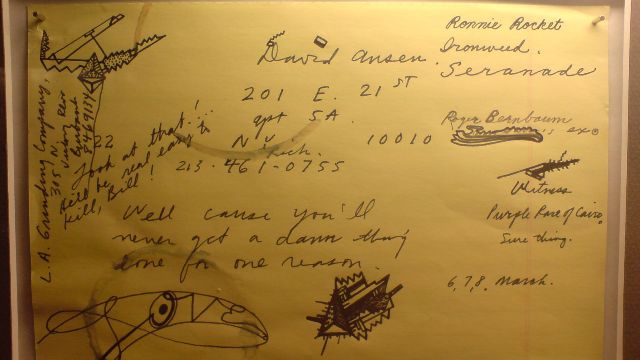 Ronnie Rocket
Ironweed.
Seranade
David Ansen.
201 E. 21 ST
apt 5A.
N.Y. 10010
Rich.
213-461-0755
Well cause you'll
never get a damn thing
done for one reason.
L.A. Grinding Company,
305 N.
Victory Blvd
Burbank
8469134
22
Look at that...!
He'll be real easy to
Kill, Bill!
Roger Bernbaum
's ex
Witness
Purple Rose of Cairo.
Sure thing.
6,7,8, March.